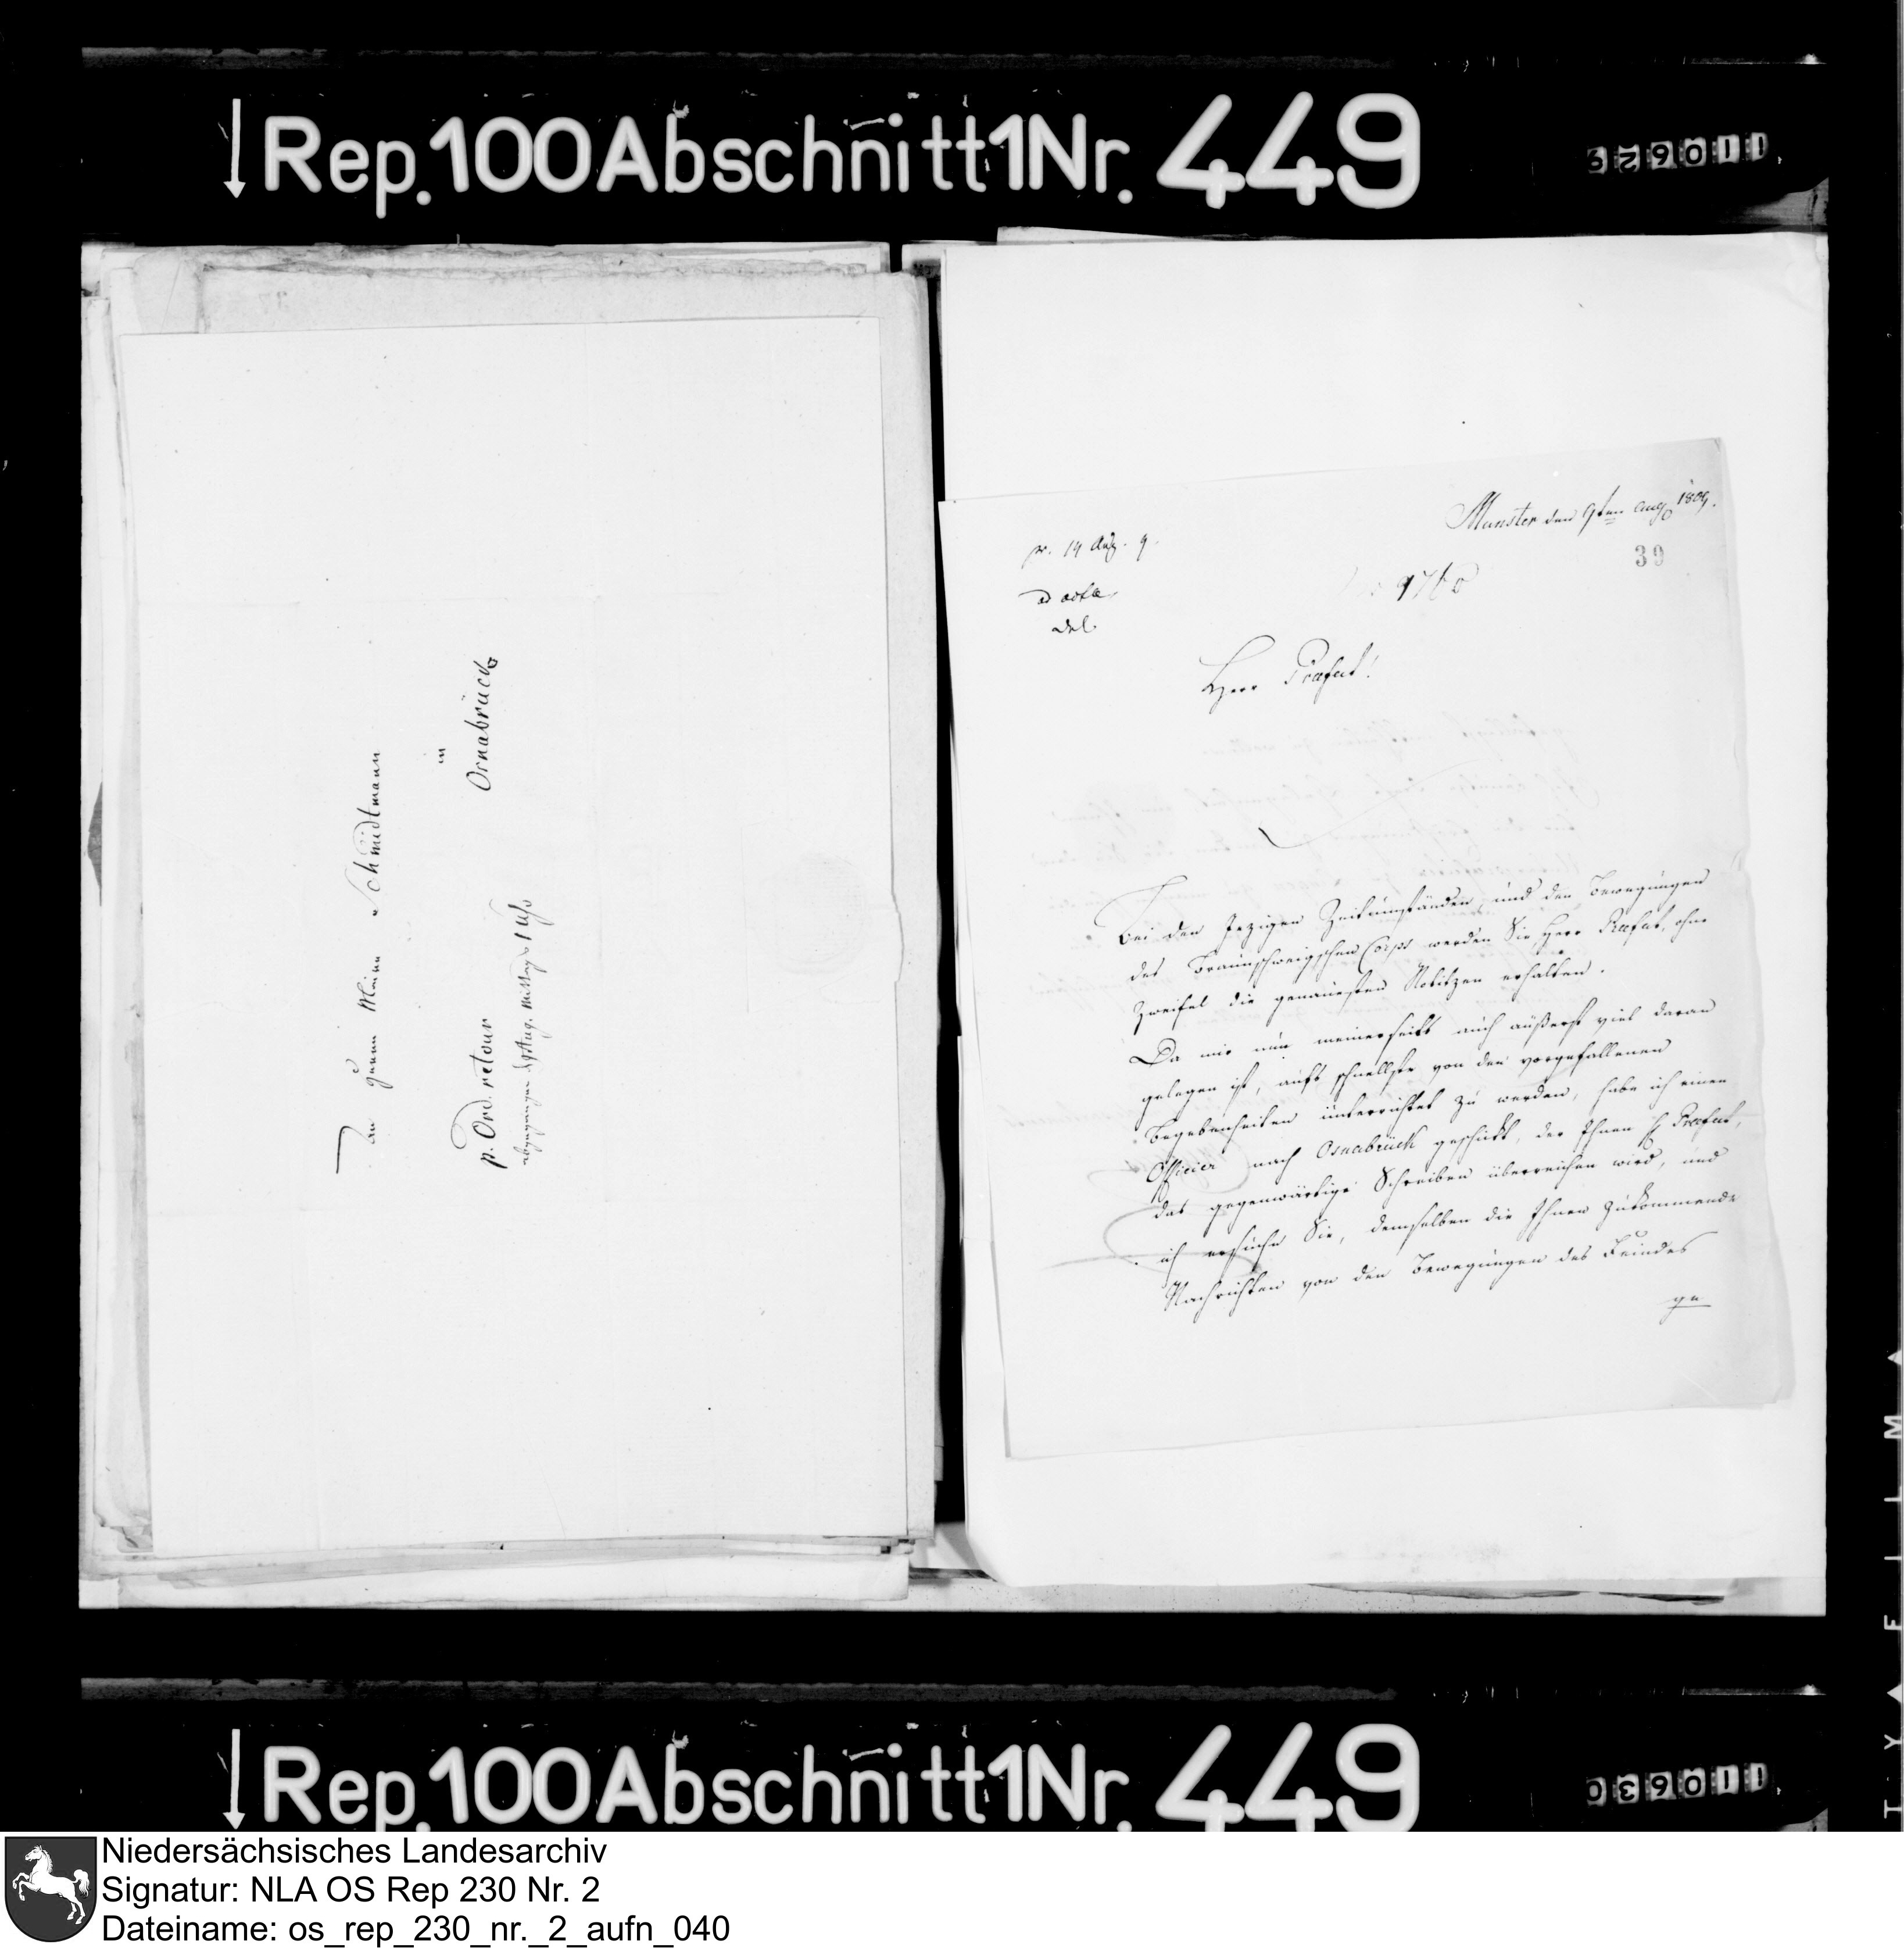 Rep.100Abschnitt1Nr.449
110629
An Herrn Maire Schmidtmann
in
Osnabrück
p. Ord. retour
abgegangen d. 9t Aug. Mittags 1 Uhr
Munster den 9ten Aug 1809.
39
pr. 14 Aug. 9.
ad acta
Herr Präfect!
Bei den jezigen Zeitumständen, und den Bewegungen
des Braunschweigschen Corps werden Sie, Herr Präfect, ohne
Zweifel die genauesten Notitzen erhalten.
Da mir nun meinerseits auch äußerst viel daran
gelegen ist, aufs schnellste von den vorgefallenen
Begebenheiten unterrichtet zu werden, habe ich einen
Officier nach Osnabrück geschickt, der Ihnen H Präfect,
das gegenwärtige Schreiben überreichen wird, und
ich ersuche Sie, demselben die Ihnen zukommende
Nachrichten von den Bewegungen des Feindes
ge
Rep.100Abschnitt1Nr.449
110630
Niedersächsisches Landesarchiv
Signatur: NLA OS Rep 230 Nr. 2
Dateiname: os_rep_230_nr._2_aufn_040